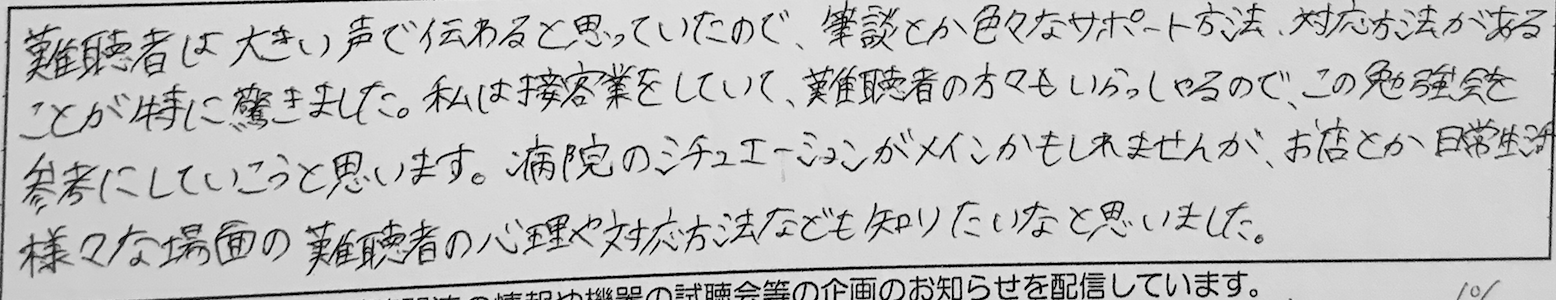 難聴者は大きい声で伝わると思っていたので、筆談とか色々なサポート方法、対応方法がある
ことが特に驚きました。私は接客業をしていて、難聴者の方々もいらっしゃるので、この勉強会を
参考にしていこうと思います。病院のシチュエーションがメインかもしれませんが、お店とか日常生活
様々な場面の難聴者の心理や対応方法なども知りたいなと思いました。
の情報や機器の試聴会等の企画のお知らせを配信しています。
10/